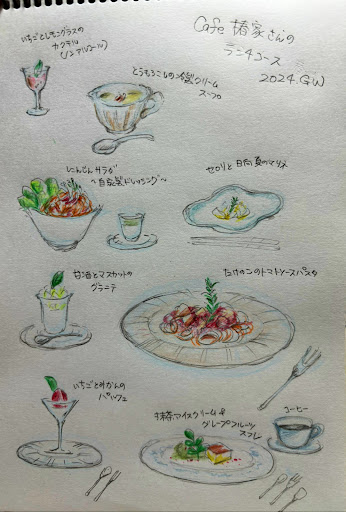 Cafe 椿家さんの
ランチコース
2024.GW
いちごとレモングラスの
カクテル
(ノンアルコール)
とうもろこしの冷製クリーム
スープ
にんじんサラダ
〜自家製ドレッシング〜
セロリと日向夏のマリネ
甘酒とマスカットの
グラニテ
たけのこのトマトソースパスタ
いちごとみかんの
パルフェ
抹茶アイスクリーム&
グレープフルーツ
スフレ
コーヒー